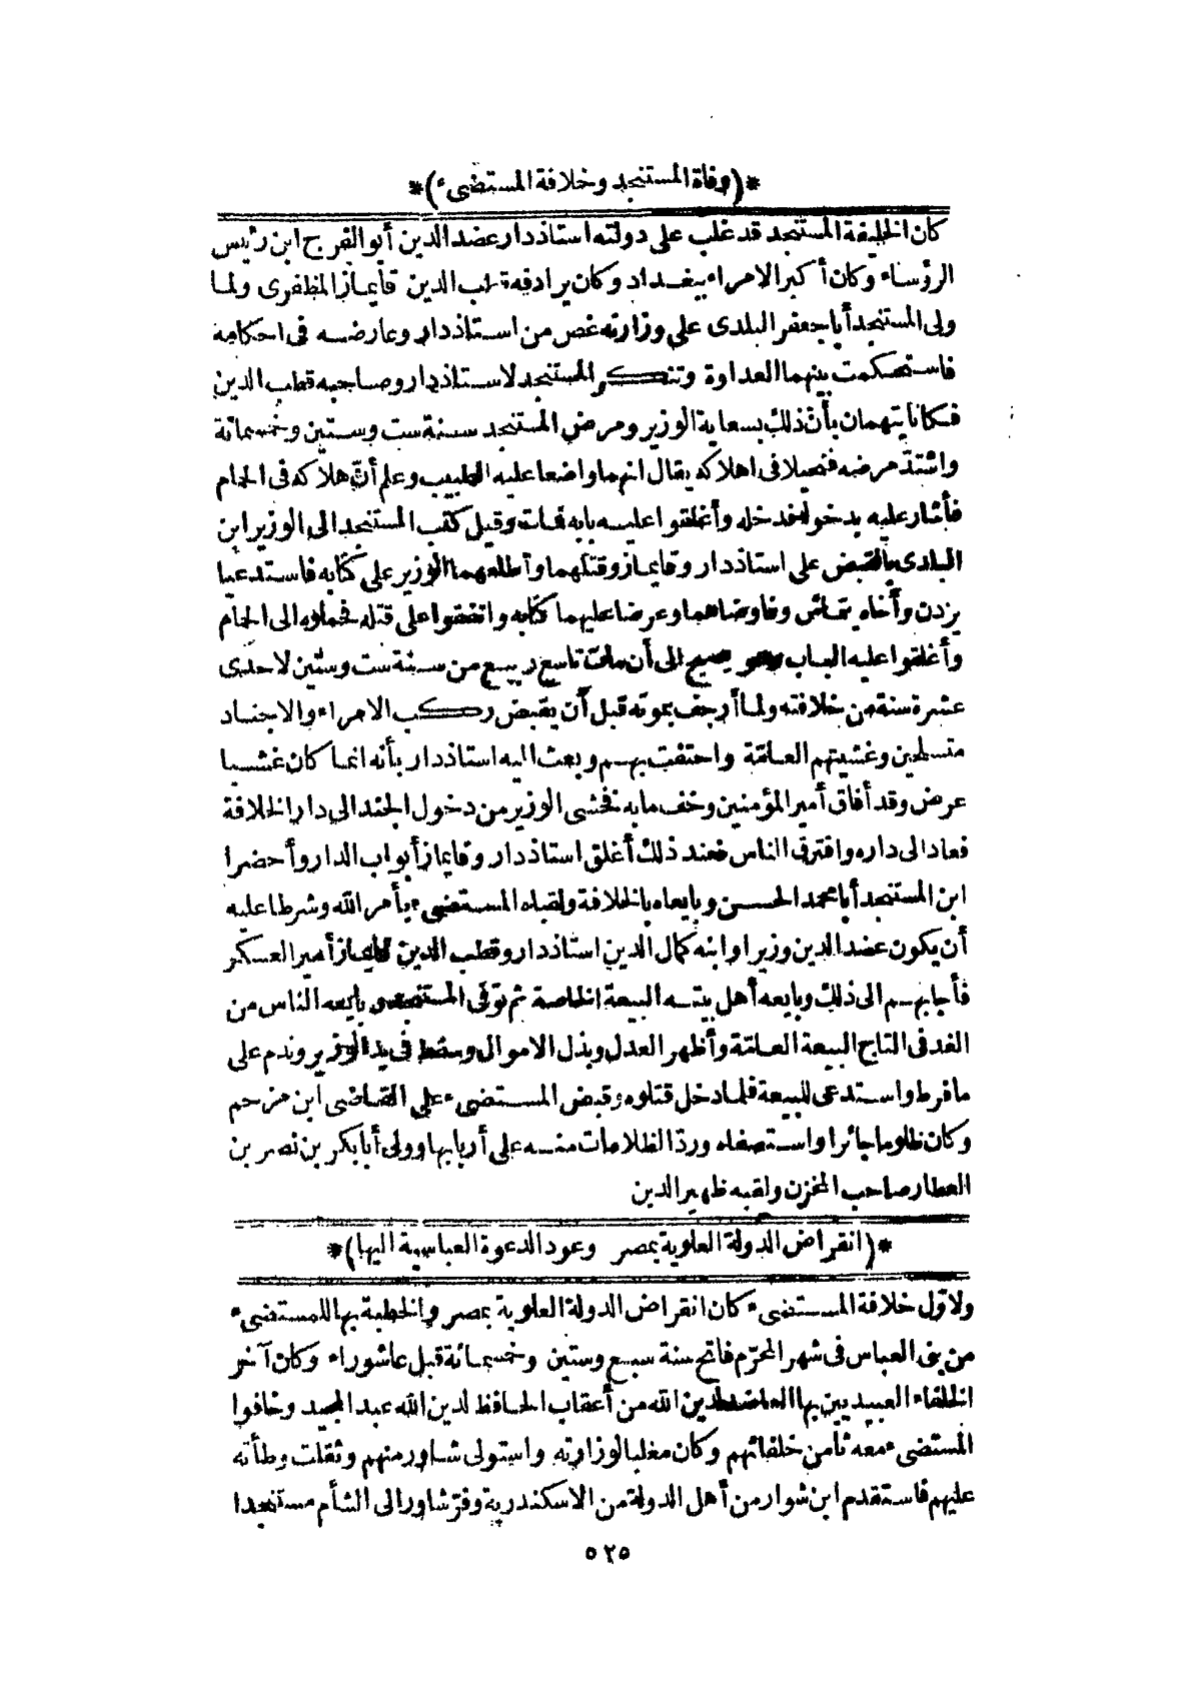 *(وفاة المستنجد وخلافة المستضىء)*
كان الخليفة المستنجد قد غلب على دولته استاذ دار عضد الدين أبو الفرج ابن رئيس
الرؤساء وكان أكبر الامراء ببغداد وكان يرادفه قطب الدين قايماز المظفرى ولما
ولى المستنجد أبا جعفر البلدى على وزارته غص من استاذ دار وعارضه فى احكامه
فاستحكمت بينهما العداوة وتنكر المستنجد لاستاذ دار وصاحبه قطب الدين
فكانا يتهمان بأنّ ذلك بسعاية الوزير ومرض المستنجد سنة ست وستين وخمسمائة
واشتدّ مرضه فتحيلا فى اهلاكه يقال انهما واضعا عليه الطبيب وعلم أنّ هلاكه فى الحمام
فأشار عليه بدخوله فدخله وأغلقوا عليه بابه فمات وقيل كتب المستنجد الى الوزير ابن
البلدى بالقبض على استاذ دار وقايماز وقتلهما وأطلعهما الوزير على كتابه فاستدعيا
يزدن وأخاه يتماش وفاوضاهما وعرضا عليهما كتابه واتفقوا على قتله فحملوه الى الحمام
وأغلقوا عليه الباب وهو يصيح الى أن مات تاسع ربيع من سنة ست وستين لاحدى
عشرة سنة من خلافته ولما أرجف بموته قبل أن يقبض ركب الامراء والاجناد
متسلحين وغشيتهم العامّة واحتفت بهم وبعث اليه استاذ دار بأنه انما كان غشيا
عرض وقد أفاق أمير المؤمنين وخف ما به فخشى الوزير من دخول الجند الى دار الخلافة
فعاد الى داره وافترق الناس فعند ذلك أغلق استاذ دار وقايماز أبواب الدار وأحضرا
ابن المستنجد أبا محمد الحسن وبايعاه بالخلافة ولقباه المستضىء بأمر الله وشرطا عليه
أن يكون عضد الدين وزيرا وابنه كمال الدين استاذ دار وقطب الدين قايماز أمير العسكر
فأجابهم الى ذلك وبايعه أهل بيته البيعة الخاصة ثم توفى المستنجد وبايعه الناس من
الغد فى التاج البيعة العامّة وأظهر العدل وبذل الاموال وسقط فى يد الوزير وندم على
ما فرط واستدعى للبيعة فلما دخل قتلوه وقبض المستضىء على القاضى ابن مزحم
وكان ظلوما جائرا واستصفاه وردّ الظلامات منه على أربابها وولى أبا بكر بن نصر بن
العطار صاحب المخزن ولقبه ظهير الدين
*(انقراض الدولة العلوية بمصر وعود الدعوة العباسية اليها)*
ولاوّل خلافة المستضىء كان انقراض الدولة العلوية بمصر والخطبة بها للمستضىء
من بنى العباس فى شهر المحرّم فاتح سنة سبع وستين وخمسمائة قبل عاشوراء وكان آخر
الخلفاء العبيديين بها العاضد لدين الله من أعقاب الحافظ لدين الله عبد المجيد وخافوا
المستضىء معه ثامن خلفائهم وكان مغلبا لوزارته واستولى شاور منهم وثقلت وطأته
عليهم فاستقدم ابن شوار من أهل الدولة من الاسكندرية وفرّ شاور الى الشأم مستنجدا
٥٢٥